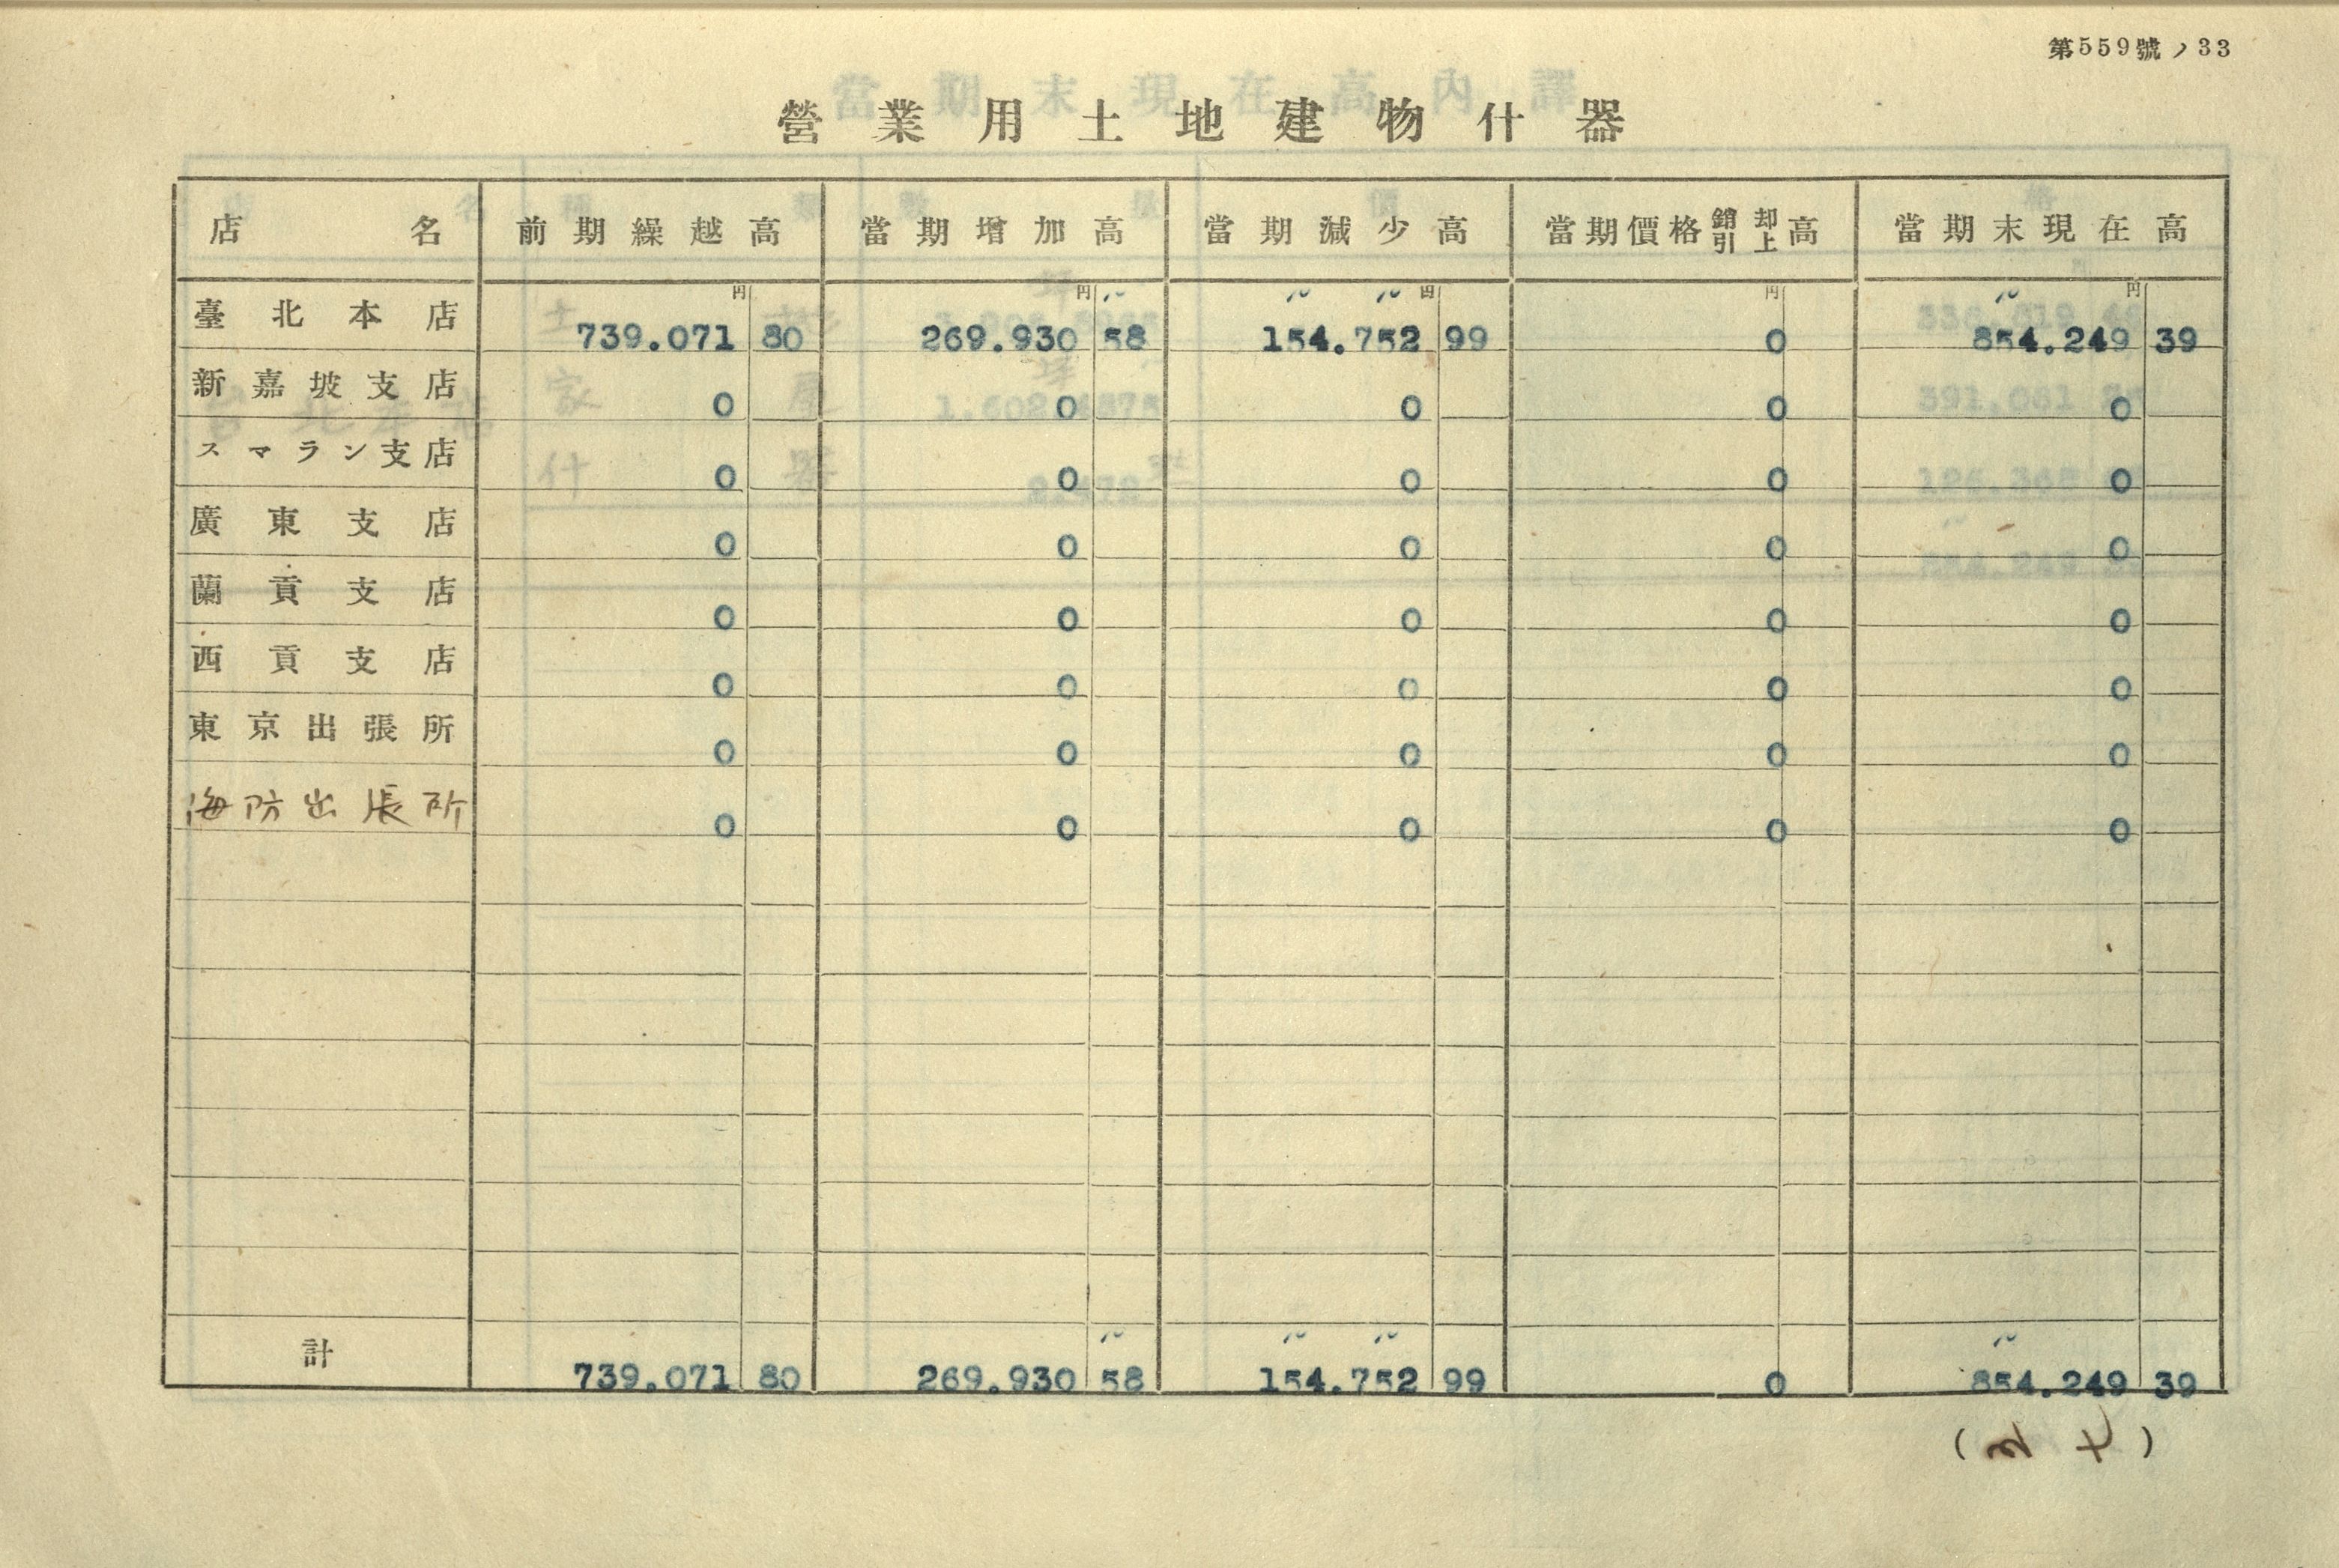 第559號ノ33
營業用土地建物什器
店名 前期繰越高 當期增加高 當期減少高 當期價格銷却引上高 當期末現在高
円 円 円 円 円
臺北本店 739.071 80 269.930 58 154.752 99 0 854.249 39
新嘉坡支店 0 0 0 0 0
スマラン支店 0 0 0 0 0
廣東支店 0 0 0 0 0
蘭貢支店 0 0 0 0 0
西貢支店 0 0 0 0 0
東京出張所 0 0 0 0 0
海防出張所 0 0 0 0 0
計 739.071 80 269.930 58 154.752 99 0 854.249 39